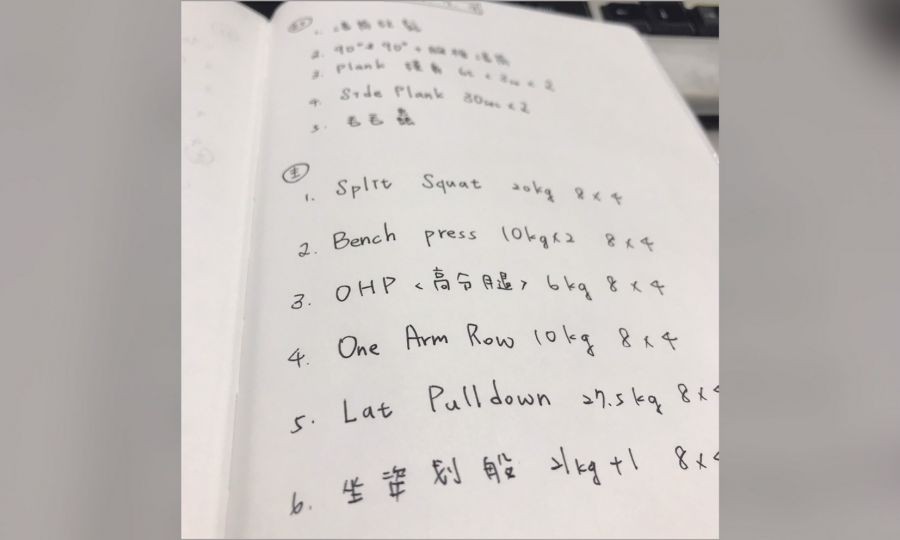 2. 90° 90° +
3. Plank
4. Side Plank 30sec × 2
5. 毛毛蟲
主
1. Split Squat 20kg 8 × 4
2. Bench press 10kg×2 8 × 4
3. OHP <高分腿> 6kg 8 × 4
4. One Arm Row 10kg 8 × 4
5. Lat Pulldown 27.5kg 8 ×
6. 坐姿划船 21kg +1 8 ×